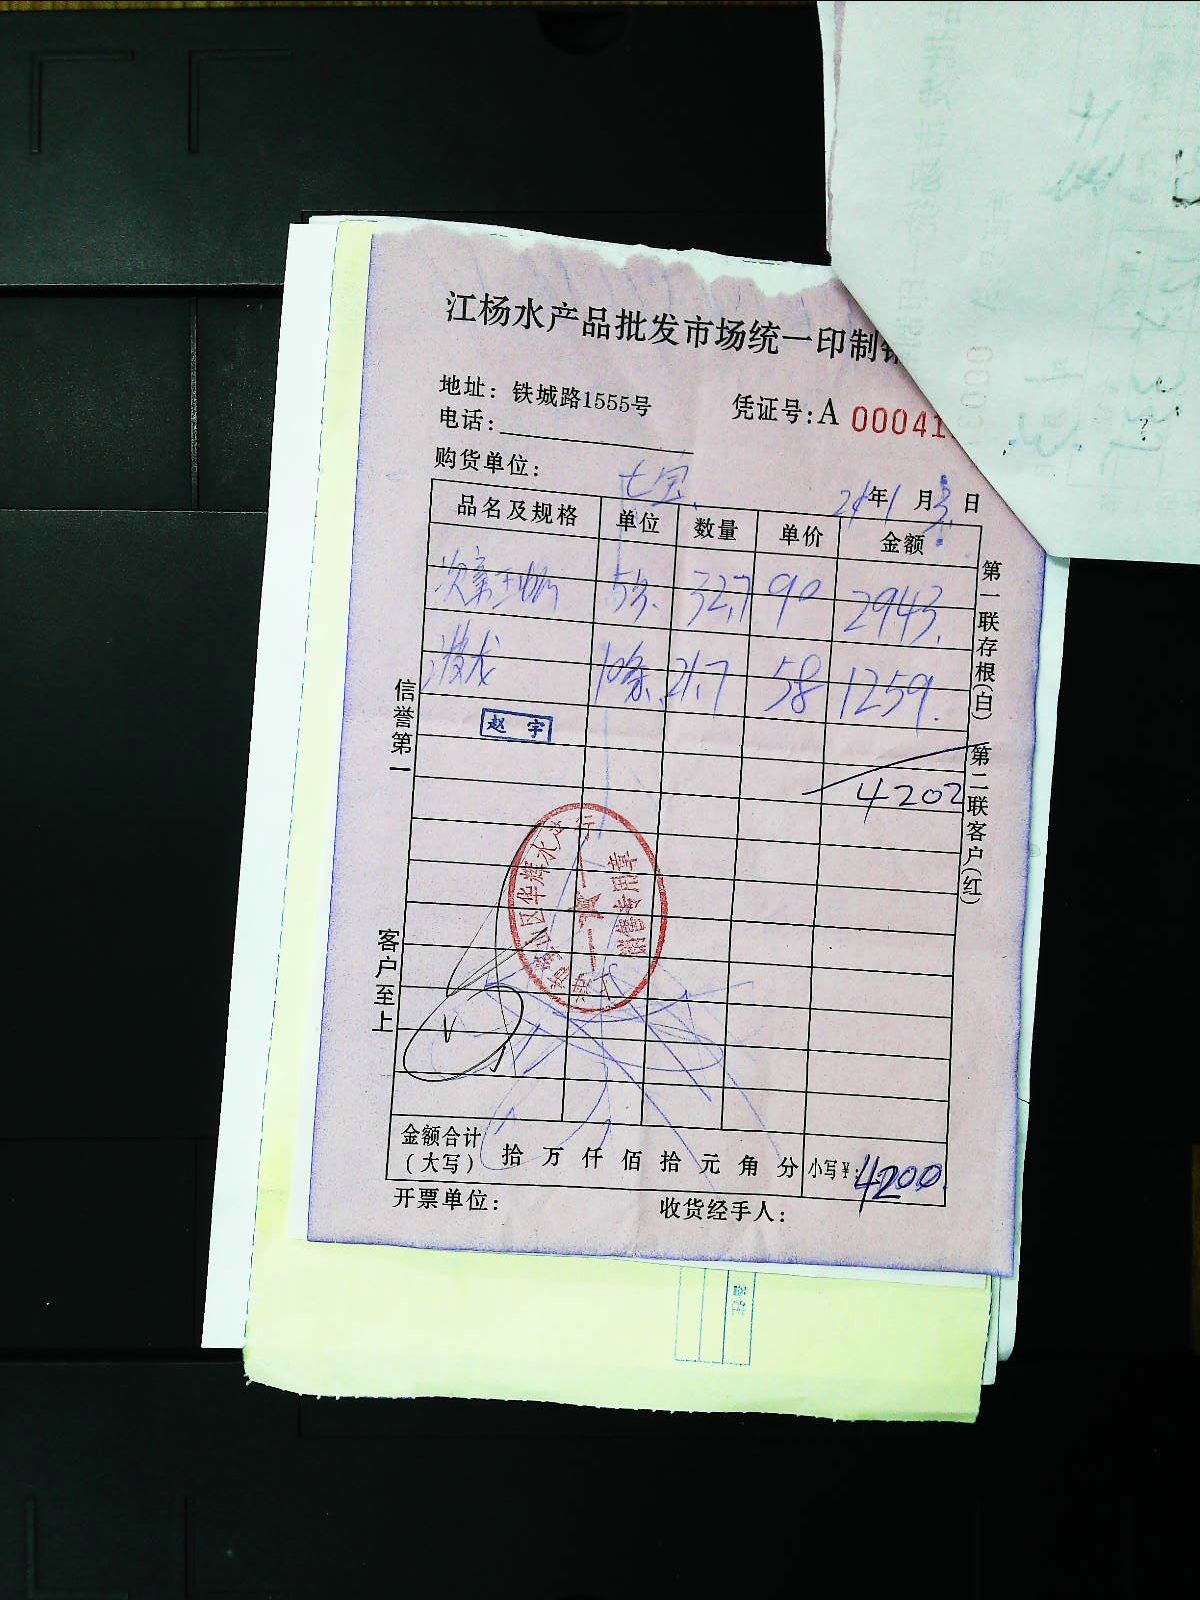 江杨水产品批发市场统一印制
地址：铁城路1555号
凭证号:A 00041
电话：
购货单位： 七宝
24年1月3日
品名及规格 单位 数量 单价 金额
32.7 90 2943.
波龙 10条. 21.7 58 1259.
赵宇
4202
信誉第一
客户至上
第一联存根(白)
第二联客户(红)
宝山区华辉水产行
销售专用章
金额合计(大写) 拾 万 仟 佰 拾 元 角 分 小写¥: 4200.
开票单位：
收货经手人：
备注